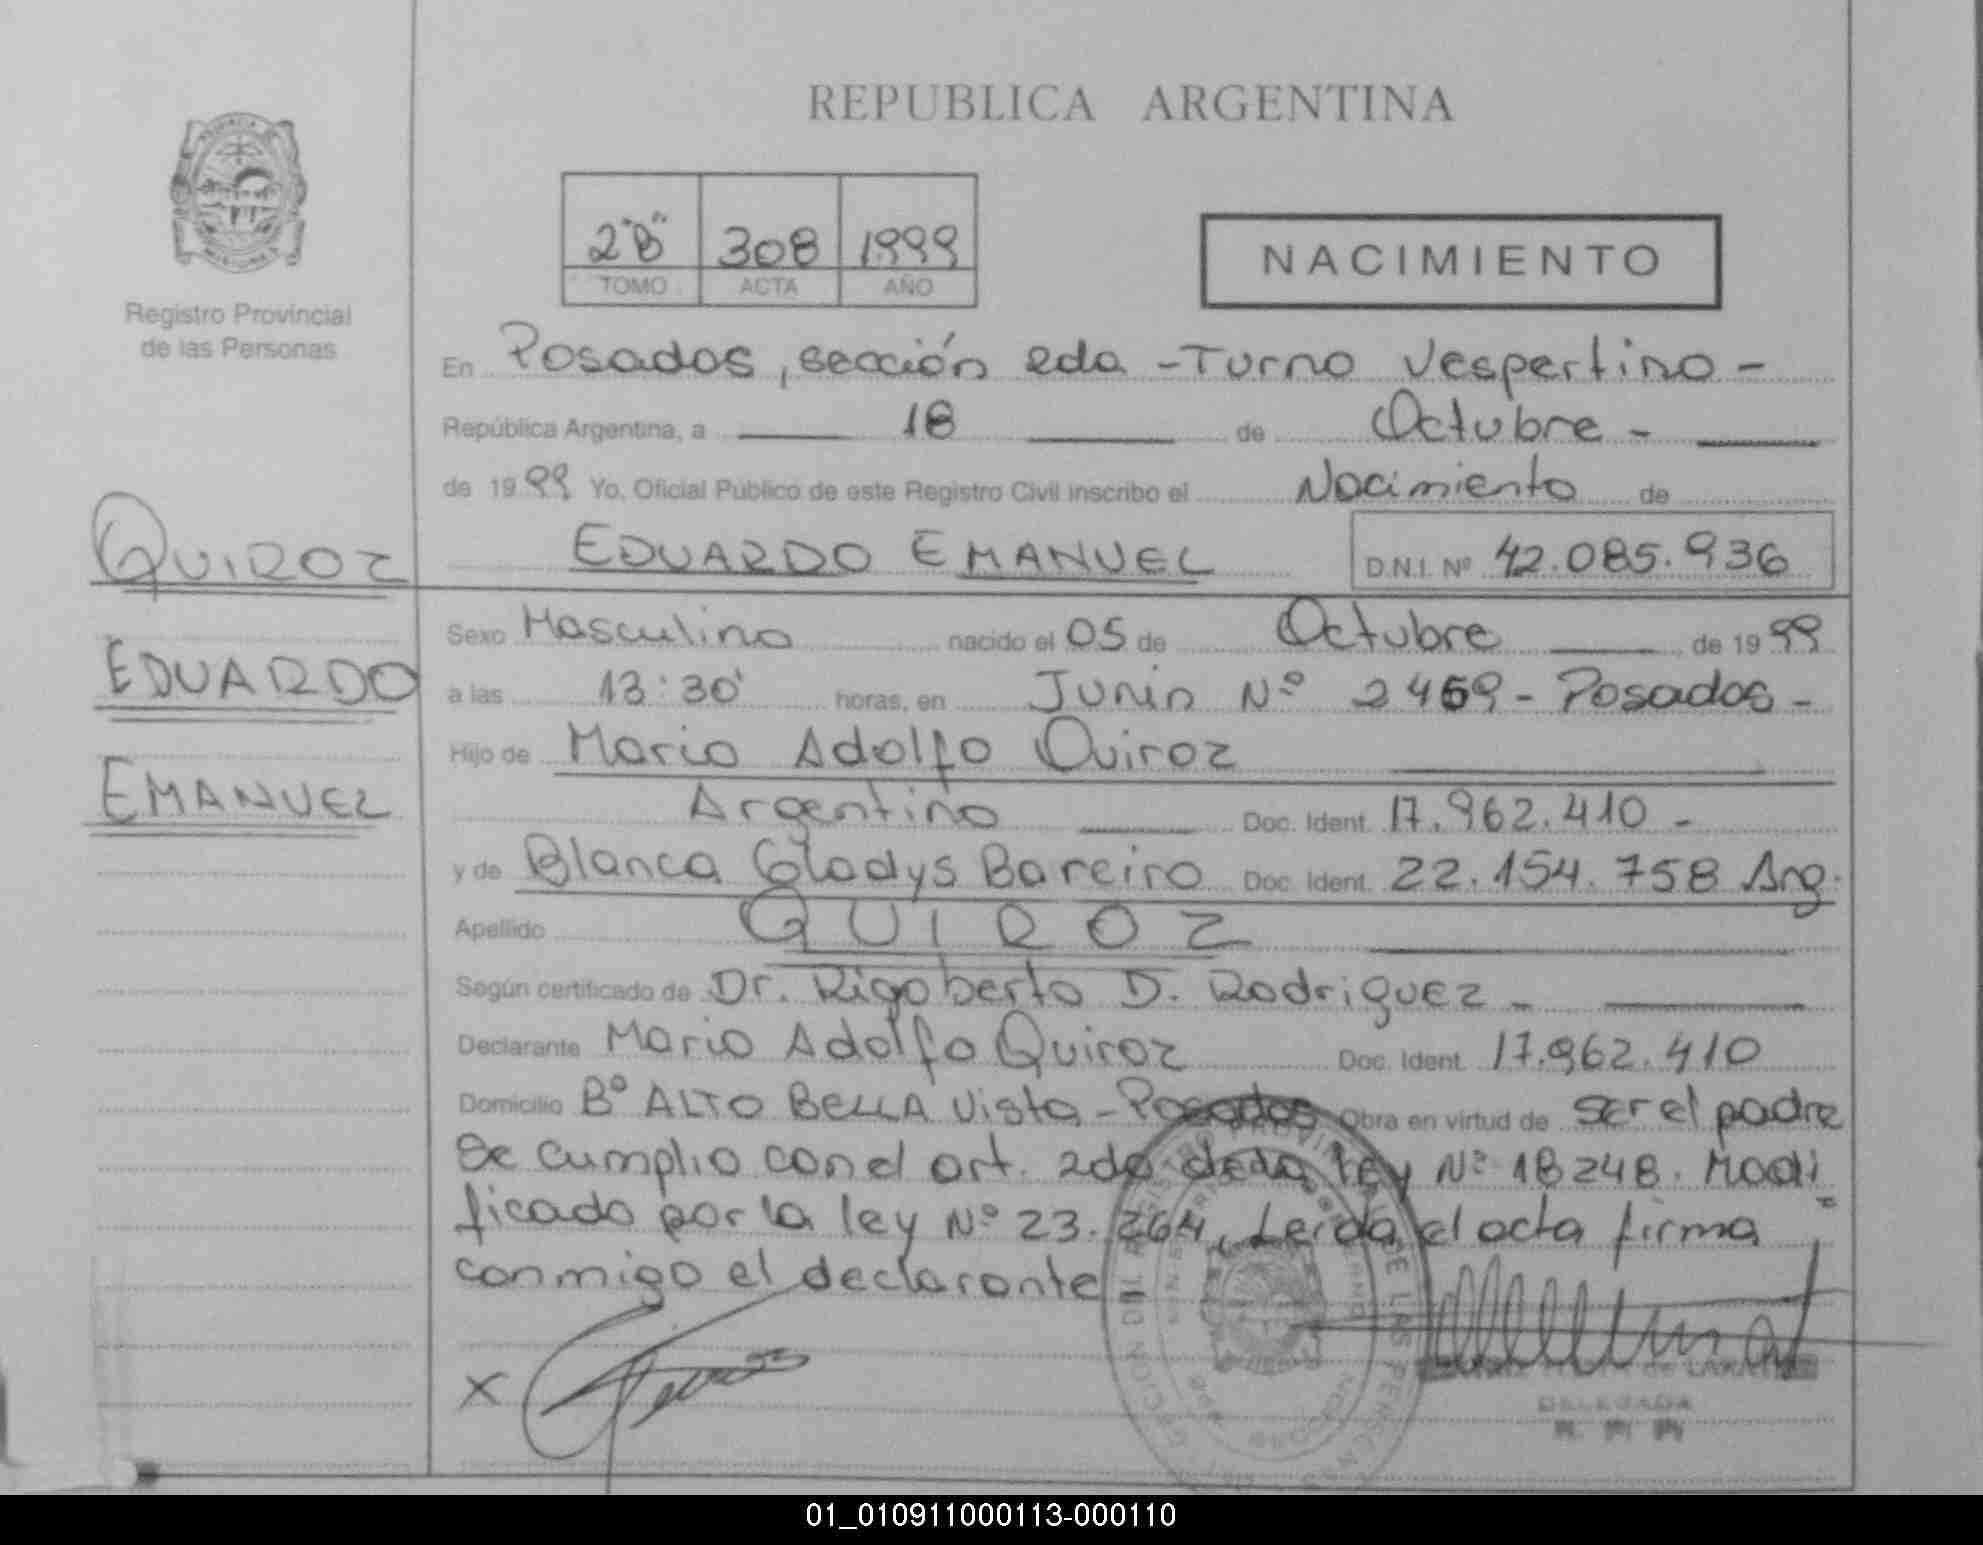 REPUBLICA ARGENTINA
2"B" 308 1999
TOMO ACTA AÑO
NACIMIENTO
Registro Provincial
de las Personas
En Posadas, sección 2da - Turno Vespertino -
República Argentina, a 18 de Octubre -
de 1999 Yo, Oficial Público de este Registro Civil inscribo el Nacimiento de
EDUARDO EMANUEL D.N.I. Nº 42.085.936
QUIROZ
EDUARDO
EMANUEL
Sexo Masculino nacido el 05 de Octubre de 1999
a las 13:30' horas, en Junin Nº 2469 - Posadas -
Hijo de Mario Adolfo Quiroz
Argentino Doc. Ident. 17.962.410 -
y de Blanca Gladys Bareiro Doc. Ident. 22.154.758 Arg.
Apellido QUIROZ
Según certificado de Dr. Rigoberto D. Rodriguez -
Declarante Mario Adolfo Quiroz Doc. Ident. 17.962.410
Domicilio Bº ALTO BELLA Vista - Posadas Obra en virtud de ser el padre
Se cumplio con el art. 2do de la ley Nº 18248. Modi
ficado por la ley Nº 23.264, Leida el acta firma
conmigo el declarante -
X
DELEGADA
01_010911000113-000110